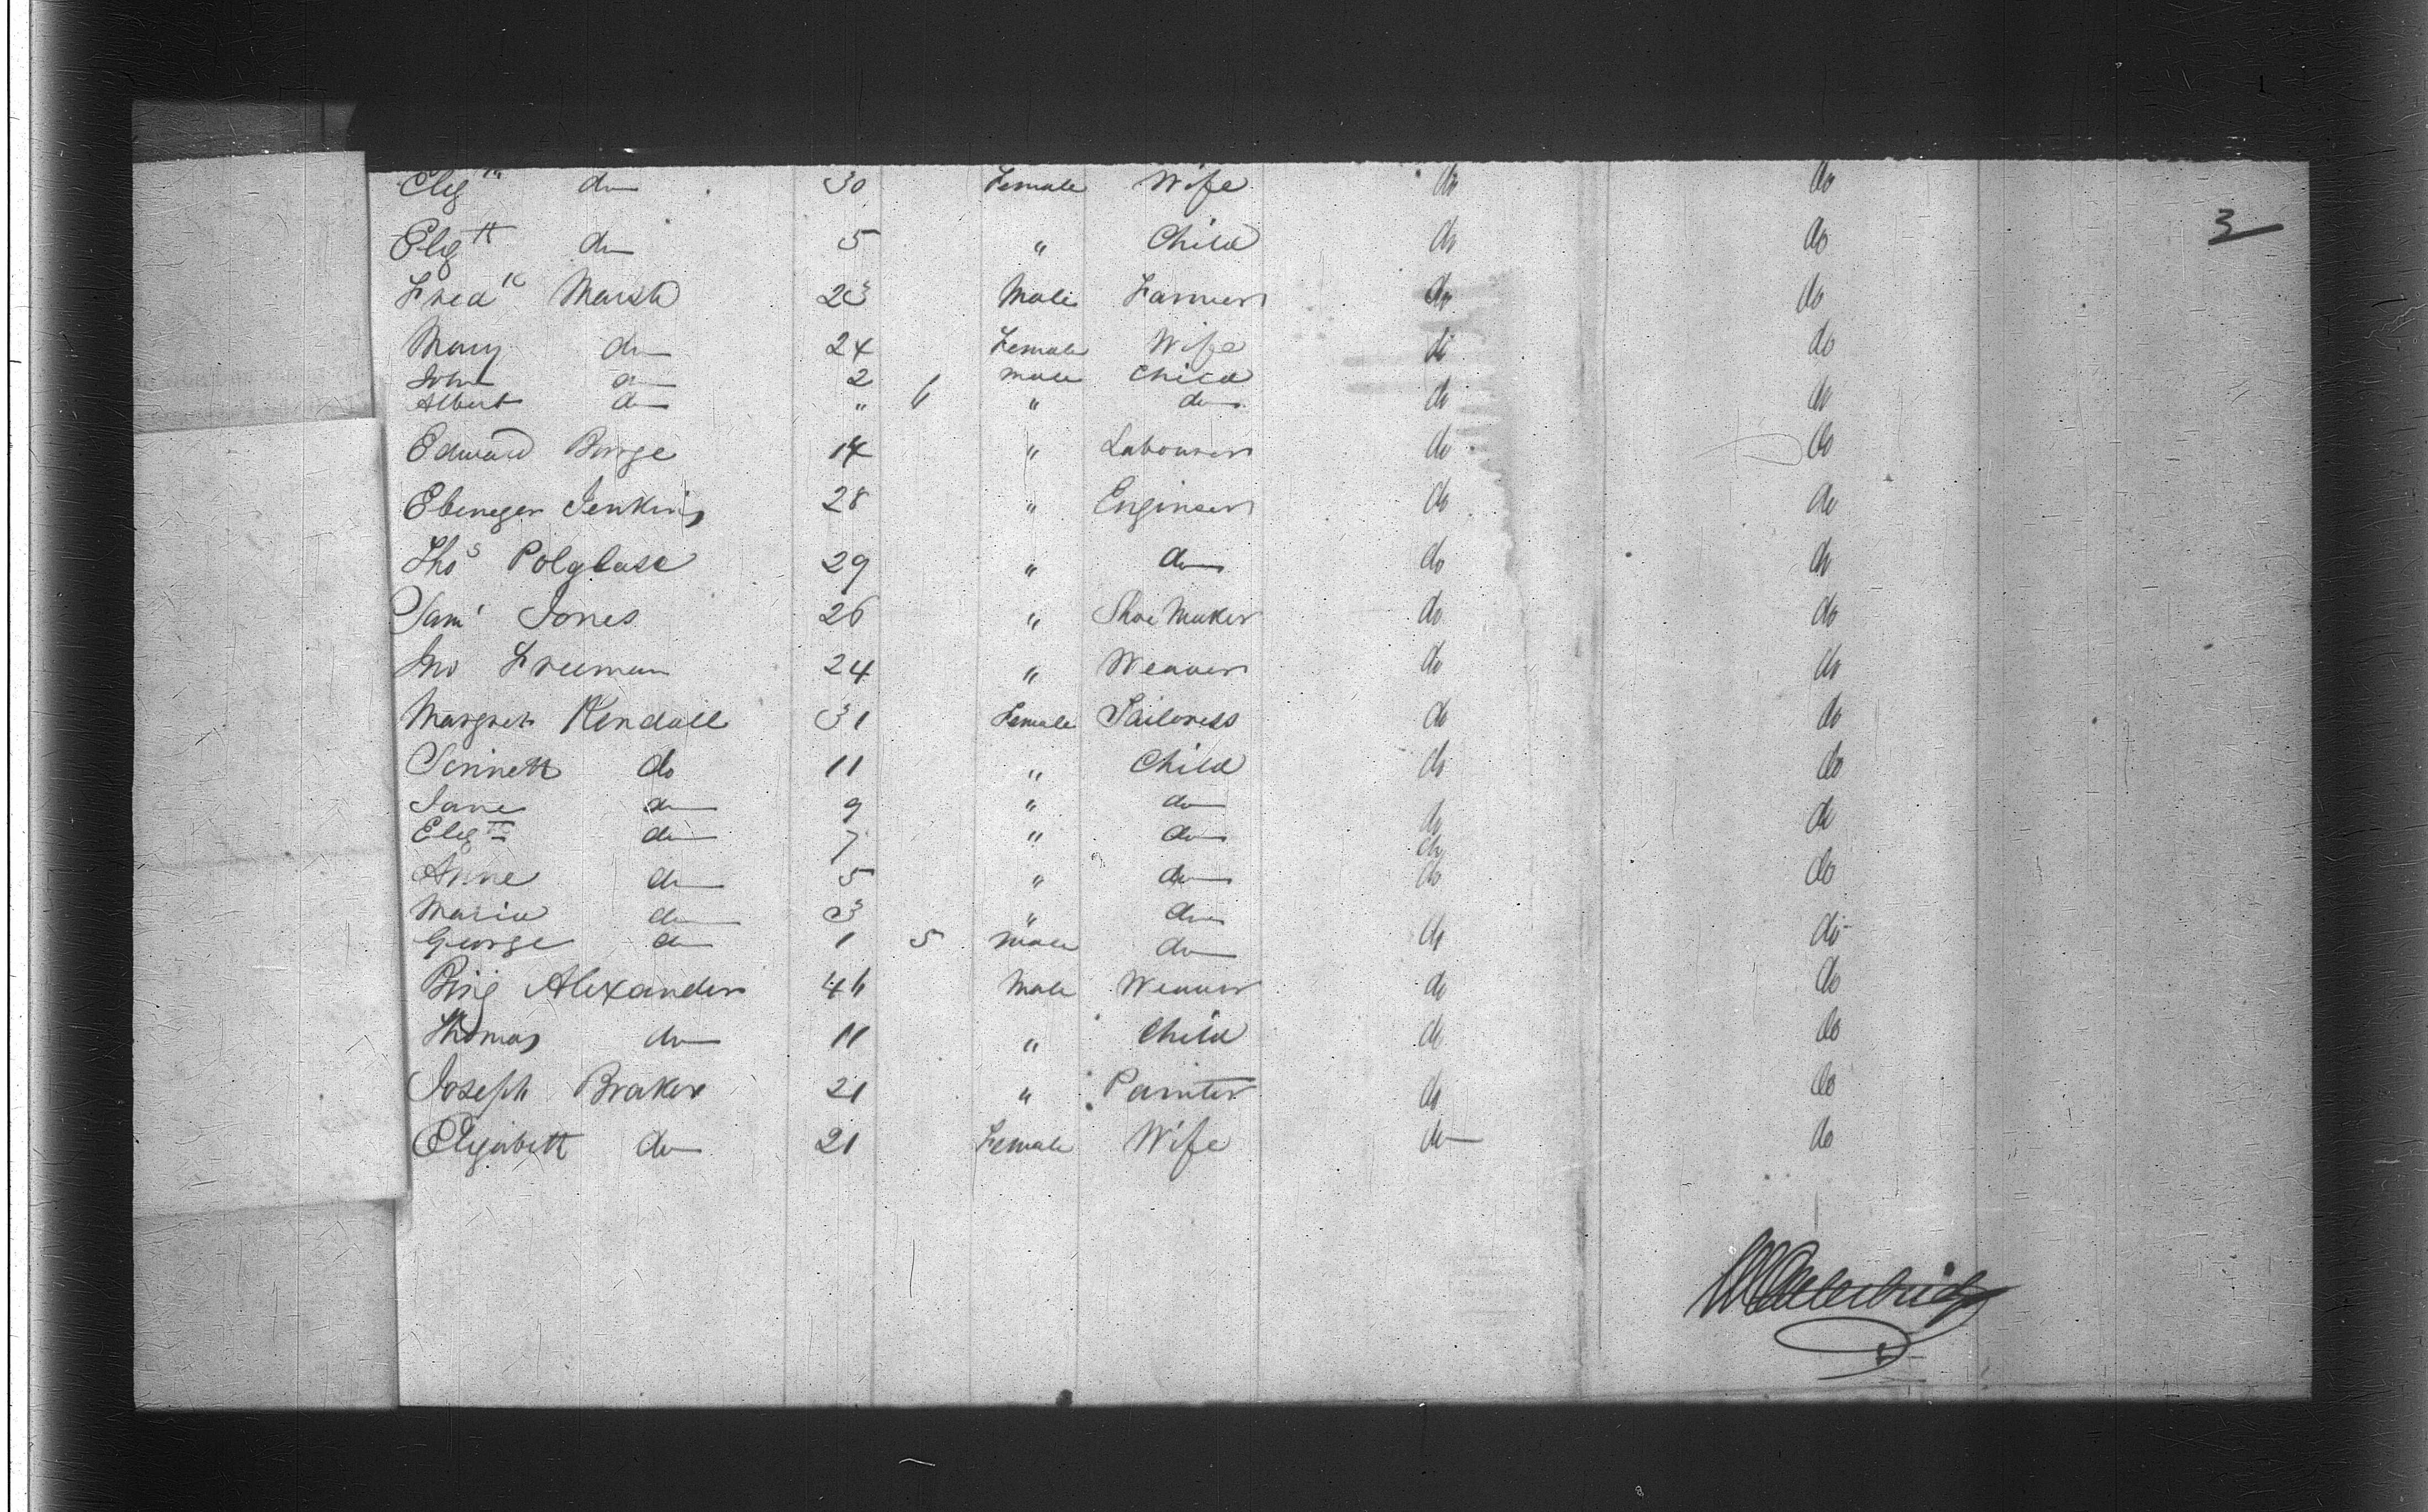 Eliz th do 30 Female Wife do do
3
Eliz th do 5 " Child do do
Fredk Marsh 23 Male Farmer do do
Mary do 24 Female Wife do do
John do 2 male Child
Albert do " 6 " do do do
Edward Burge 14 " Labourer do do
Ebenezer Jenkins 28 " Engineer do do
Thos Polglase 29 " do do do
Saml Jones 26 " Shoe Maker do do
Jno Freeman 24 " Weaver do do
Margret Kendall 31 Female Tailoress do do
Jennett do 11 " Child do do
Jane do 9 " do do do
Elizth do 7 " do do
Anne do 5 " do do do
Maria do 3 " do
George do 1 5 male do do do
Binj Alexander 46 Male Weaver do do
Thomas do 11 " Child do do
Joseph Braker 21 " Painter do do
Elizabeth do 21 Female Wife do do